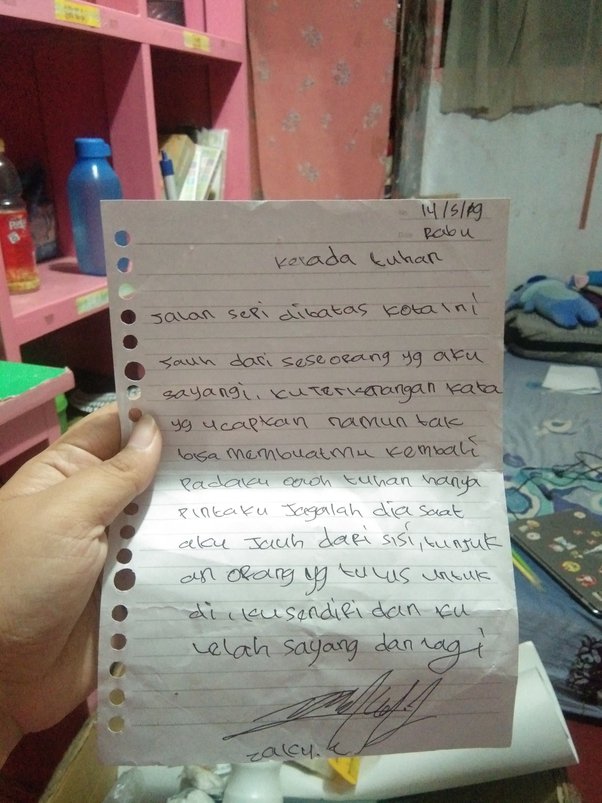 14/5/19
Rabu
kepada tuhan
jalan sepi dibatas kota ini
jauh dari seseorang yg aku
sayangi. ku terkenangan kata
yg ucapkan namun tak
bisa membuatmu kembali
padaku oooh tuhan hanya
pintaku jagalah dia saat
aku jauh dari sisi, tunjuk
an orang yg tulus untuk
di iku sendiri dan ku
lelah sayang dan lagi
zaky.k